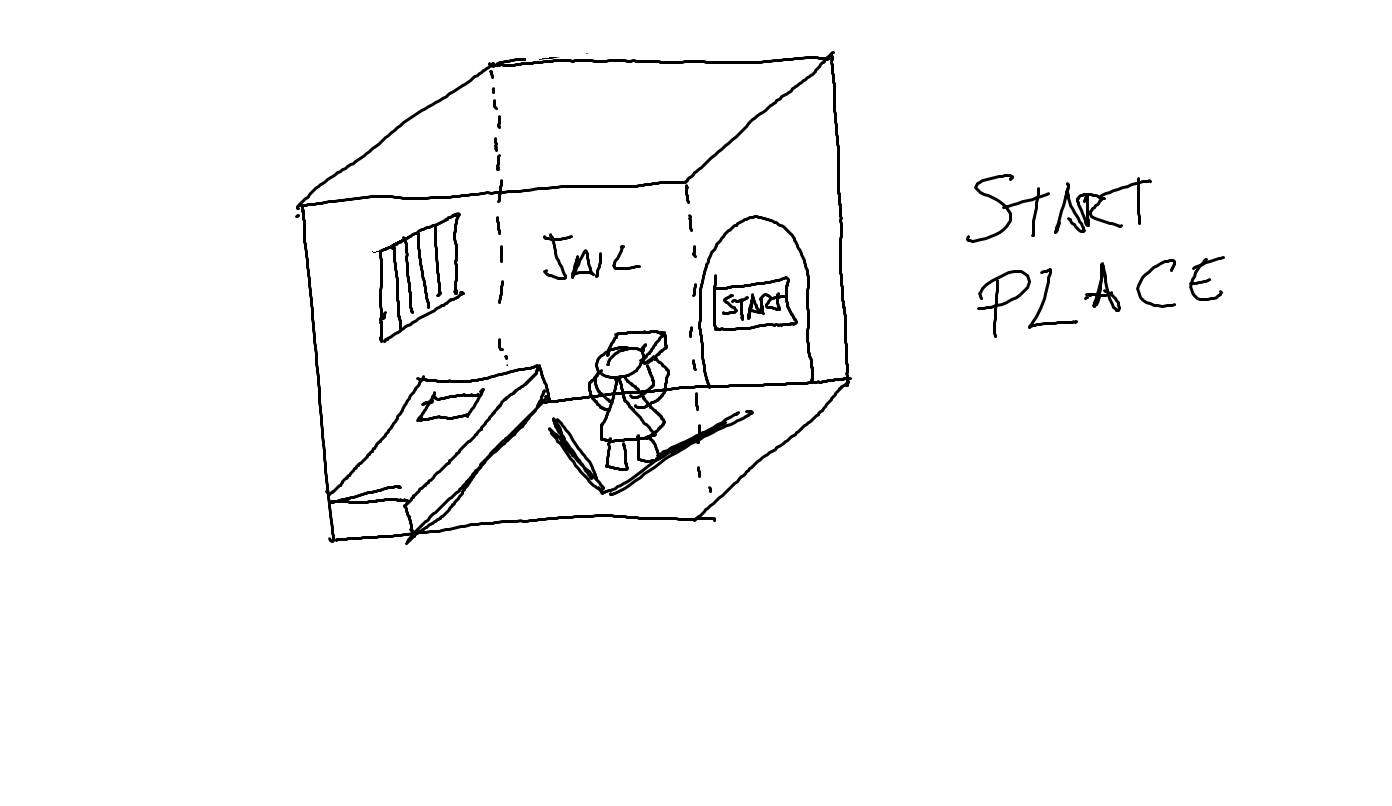 JAIL
START
START
PLACE